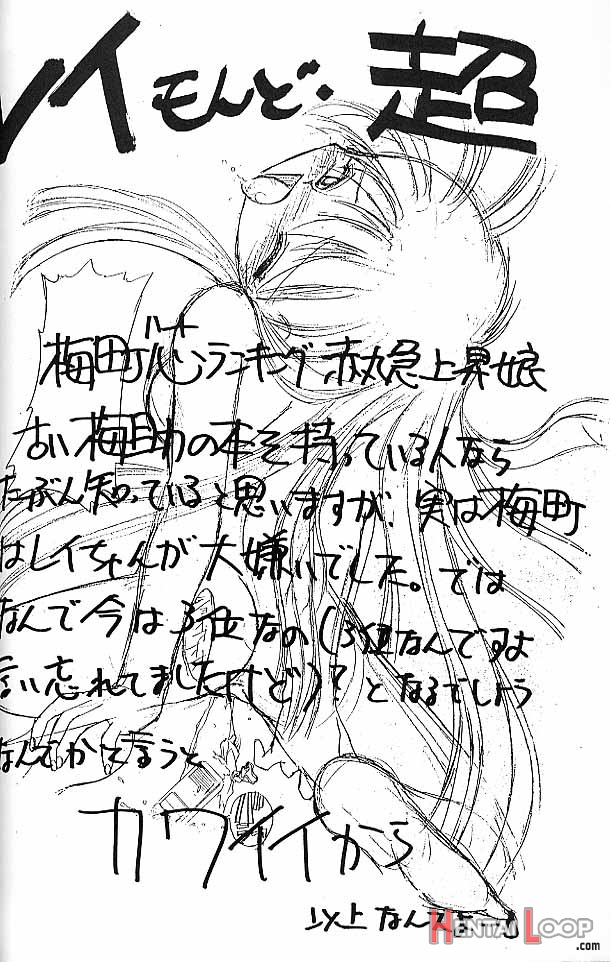 レイもんど・超
ハート
梅町心ランキング赤丸急上昇娘
古い梅町の本を持っている人なら
たぶん知っていると思いますが、実は梅町
はレイちゃんが大嫌いでした。では
なんで今は3位なの(3位なんですよ
言い忘れてましたけど)?となるでしょう
なんでかと言うと
カワイイから
以上なんす
HENTAI LOOP
.com